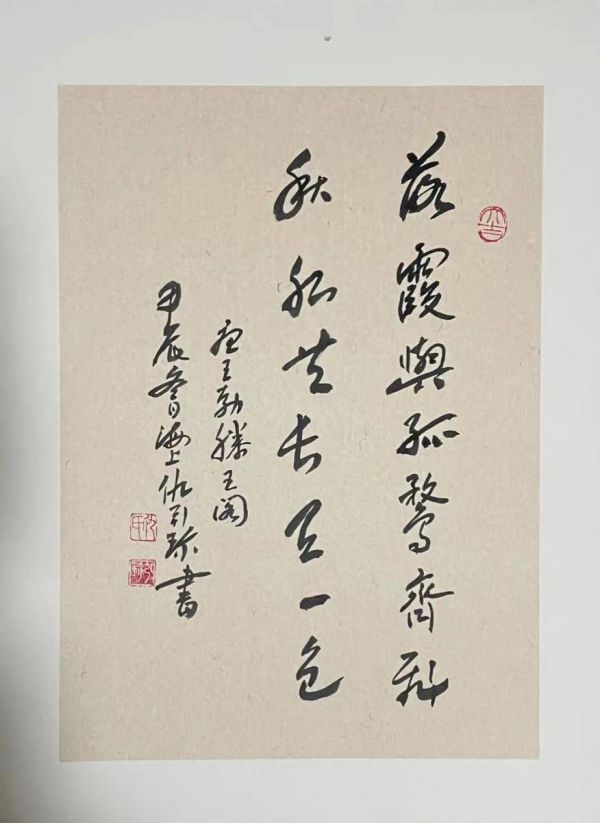 落霞與孤鶩齊飛
秋水共長天一色
唐王勃滕王閣
甲辰海上仇引書
大吉